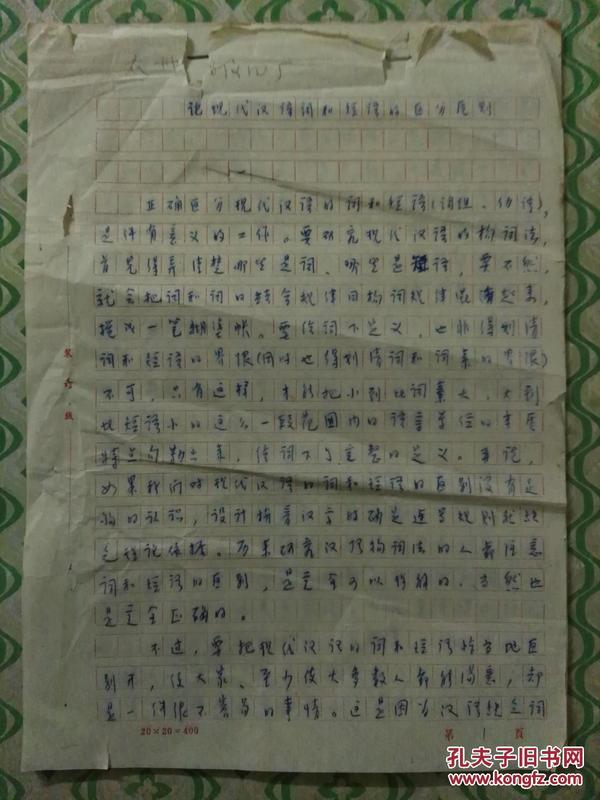 论现代汉语词和短语的区分原则
正确区分现代汉语的词和短语(词组、仂语),
是件有意义的工作。要研究现代汉语的构词法,
首先得弄清楚哪些是词,哪些是短语,要不然,
就会把词和词的结合规律同构词规律混淆起来,
搅成一笔糊涂帐。要给词下定义,也非得划清
词和短语的界限(同时也得划清词和词素的界限)
不可,只有这样,才能把小到比词素大,大到
比短语小的这么一段范围内的语言单位的本质
特点勾勒出来,给词下个完整的定义。再说,
如果我们对现代汉语的词和短语的区别没有足
够的认识,设计拼音汉字的确定连写规则就缺
乏理论依据。历来研究汉语构词法的人都注意
词和短语的区别,是完全可以理解的,当然也
是完全正确的。
不过,要把现代汉语的词和短语恰当地区
别开,使大家、至少使大多数人都能满意,却
是一件很不容易的事情。这是因为汉语缺乏词
20×20=400
第1页
装订线
孔夫子旧书网
www.kongfz.com